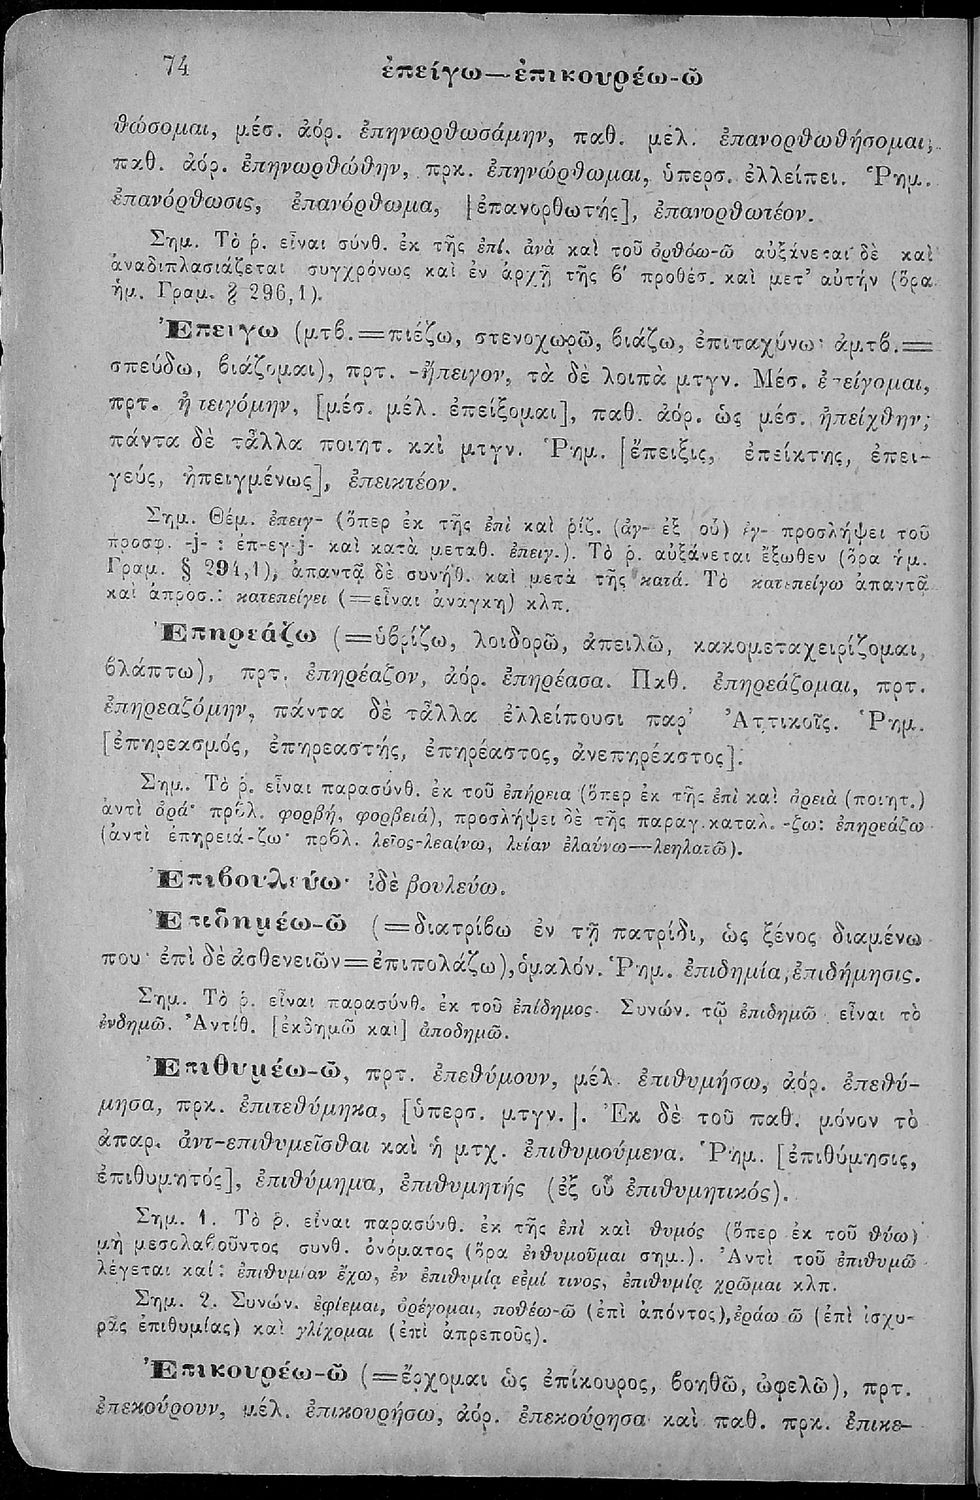 74 ἐπείγω—ἐπικουρέω-ῶ
θώσομαι, μέσ. ἀόρ. ἐπηνωρθωσάμην, παθ. μέλ. ἐπανορθωθήσομαι,
παθ. ἀόρ. ἐπηνωρθώθην, πρκ. ἐπηνώρθωμαι, ὑπερσ. ἐλλείπει. Ῥημ.
ἐπανόρθωσις, ἐπανόρθωμα, [ἐπανορθωτής], ἐπανορθωτέον.
Σημ. Τὸ ῥ. εἶναι σύνθ. ἐκ τῆς ἐπί, ἀνὰ καὶ τοῦ ὀρθόω-ῶ αὐξάνεται δὲ καὶ
ἀναδιπλασιάζεται συγχρόνως καὶ ἐν ἀρχῇ τῆς β′ προθέσ. καὶ μετ’ αὐτὴν (ὅρα
ἡμ. Γραμ. § 296,1).
Ἐπείγω (μτβ.=πιέζω, στενοχωρῶ, βιάζω, ἐπιταχύνω· ἀμτβ.=
σπεύδω, βιάζομαι), πρτ. -ἤπειγον, τὰ δὲ λοιπὰ μτγν. Μέσ. ἐπείγομαι,
πρτ. ἠπειγόμην, [μέσ. μέλ. ἐπείξομαι], παθ. ἀόρ. ὡς μέσ. ἠπείχθην;
πάντα δὲ τἆλλα ποιητ. καὶ μτγν. Ῥημ. [ἔπειξις, ἐπείκτης, ἐπει-
γεύς, ἠπειγμένως], ἐπεικτέον.
Σημ. Θέμ. ἐπειγ- (ὅπερ ἐκ τῆς ἐπὶ καὶ ῥίζ. (ἀγ- ἐξ οὗ) ἐγ- προσλήψει τοῦ
προσφ. -j- : ἐπ-εγ-j- καὶ κατὰ μεταθ. ἐπειγ-). Τὸ ῥ. αὐξάνεται ἔξωθεν (ὅρα ἡμ.
Γραμ. § 291,1), ἀπαντᾷ δὲ συνήθ. καὶ μετὰ τῆς κατά. Τὸ κατεπείγω ἀπαντᾷ
καὶ ἀπροσ.: κατεπείγει (=εἶναι ἀνάγκη) κλπ.
Ἐπηρεάζω (=ὑβρίζω, λοιδορῶ, ἀπειλῶ, κακομεταχειρίζομαι,
βλάπτω), πρτ. ἐπηρέαζον, ἀόρ. ἐπηρέασα. Παθ. ἐπηρεάζομαι, πρτ.
ἐπηρεαζόμην, πάντα δὲ τἆλλα ἐλλείπουσι παρ’ Ἀττικοῖς. Ῥημ.
[ἐπηρεασμός, ἐπηρεαστής, ἐπηρέαστος, ἀνεπηρέαστος].
Σημ. Τὸ ῥ. εἶναι παρασύνθ. ἐκ τοῦ ἐπήρεια (ὅπερ ἐκ τῆς ἐπὶ καὶ ἀρειὰ (ποιητ.)
ἀντὶ ἀρά· πρβλ. φορβή, φορβειά), προσλήψει δὲ τῆς παραγ. καταλ. -ζω: ἐπηρεάζω
(ἀντὶ ἐπηρειά-ζω· πρβλ. λεῖος-λεαίνω, λείαν ἐλαύνω—λεηλατῶ).
Ἐπιβουλεύω· ἰδὲ βουλεύω.
Ἐπιδημέω-ῶ (=διατρίβω ἐν τῇ πατρίδι, ὡς ξένος διαμένω
που· ἐπὶ δὲ ἀσθενειῶν=ἐπιπολάζω), ὁμαλόν. Ῥημ. ἐπιδημία, ἐπιδήμησις.
Σημ. Τὸ ῥ. εἶναι παρασύνθ. ἐκ τοῦ ἐπίδημος. Συνών. τῷ ἐπιδημῶ εἶναι τὸ
ἐνδημῶ. Ἀντίθ. [ἐκδημῶ καὶ] ἀποδημῶ.
Ἐπιθυμέω-ῶ, πρτ. ἐπεθύμουν, μέλ. ἐπιθυμήσω, ἀόρ. ἐπεθύ-
μησα, πρκ. ἐπιτεθύμηκα, [ὑπερσ. μτγν.]. Ἐκ δὲ τοῦ παθ. μόνον τὸ
ἀπαρ. ἀντ-επιθυμεῖσθαι καὶ ἡ μτχ. ἐπιθυμούμενα. Ῥημ. [ἐπιθύμησις,
ἐπιθυμητός], ἐπιθύμημα, ἐπιθυμητής (ἐξ οὗ ἐπιθυμητικός).
Σημ. 1. Τὸ ῥ. εἶναι παρασύνθ. ἐκ τῆς ἐπὶ καὶ θυμός (ὅπερ ἐκ τοῦ θύω)
μὴ μεσολαβοῦντος συνθ. ὀνόματος (ὅρα ἐνθυμοῦμαι σημ.). Ἀντὶ τοῦ ἐπιθυμῶ
λέγεται καί: ἐπιθυμίαν ἔχω, ἐν ἐπιθυμίᾳ εἰμί τινος, ἐπιθυμίᾳ χρῶμαι κλπ.
Σημ. 2. Συνών. ἐφίεμαι, ὀρέγομαι, ποθέω-ῶ (ἐπὶ ἀπόντος), ἐράω ῶ (ἐπὶ ἰσχυ-
ρᾶς ἐπιθυμίας) καὶ γλίχομαι (ἐπὶ ἀπρεποῦς).
Ἐπικουρέω-ῶ (=ἔρχομαι ὡς ἐπίκουρος, βοηθῶ, ὠφελῶ), πρτ.
ἐπεκούρουν, μέλ. ἐπικουρήσω, ἀόρ. ἐπεκούρησα καὶ παθ. πρκ. ἐπικε-